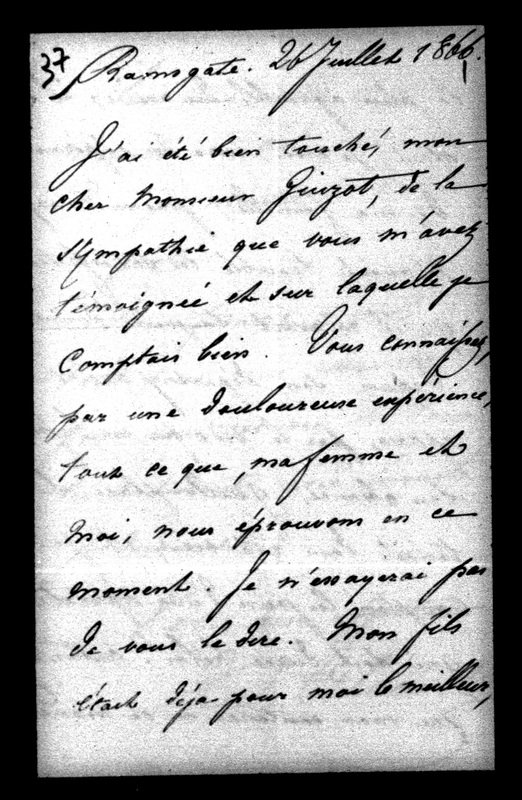 37
Ramsgate. 26 Juillet 1866.
J'ai été bien touché, mon
cher Monsieur Guizot, de la
sympathie que vous m'avez
témoignée et sur laquelle je
comptais bien. Vous connaissez,
par une douloureuse expérience,
tout ce que, ma femme et
moi, nous éprouvons en ce
moment. Je n'essayerai pas
de vous le dire. Mon fils
était déja pour moi le meilleur,